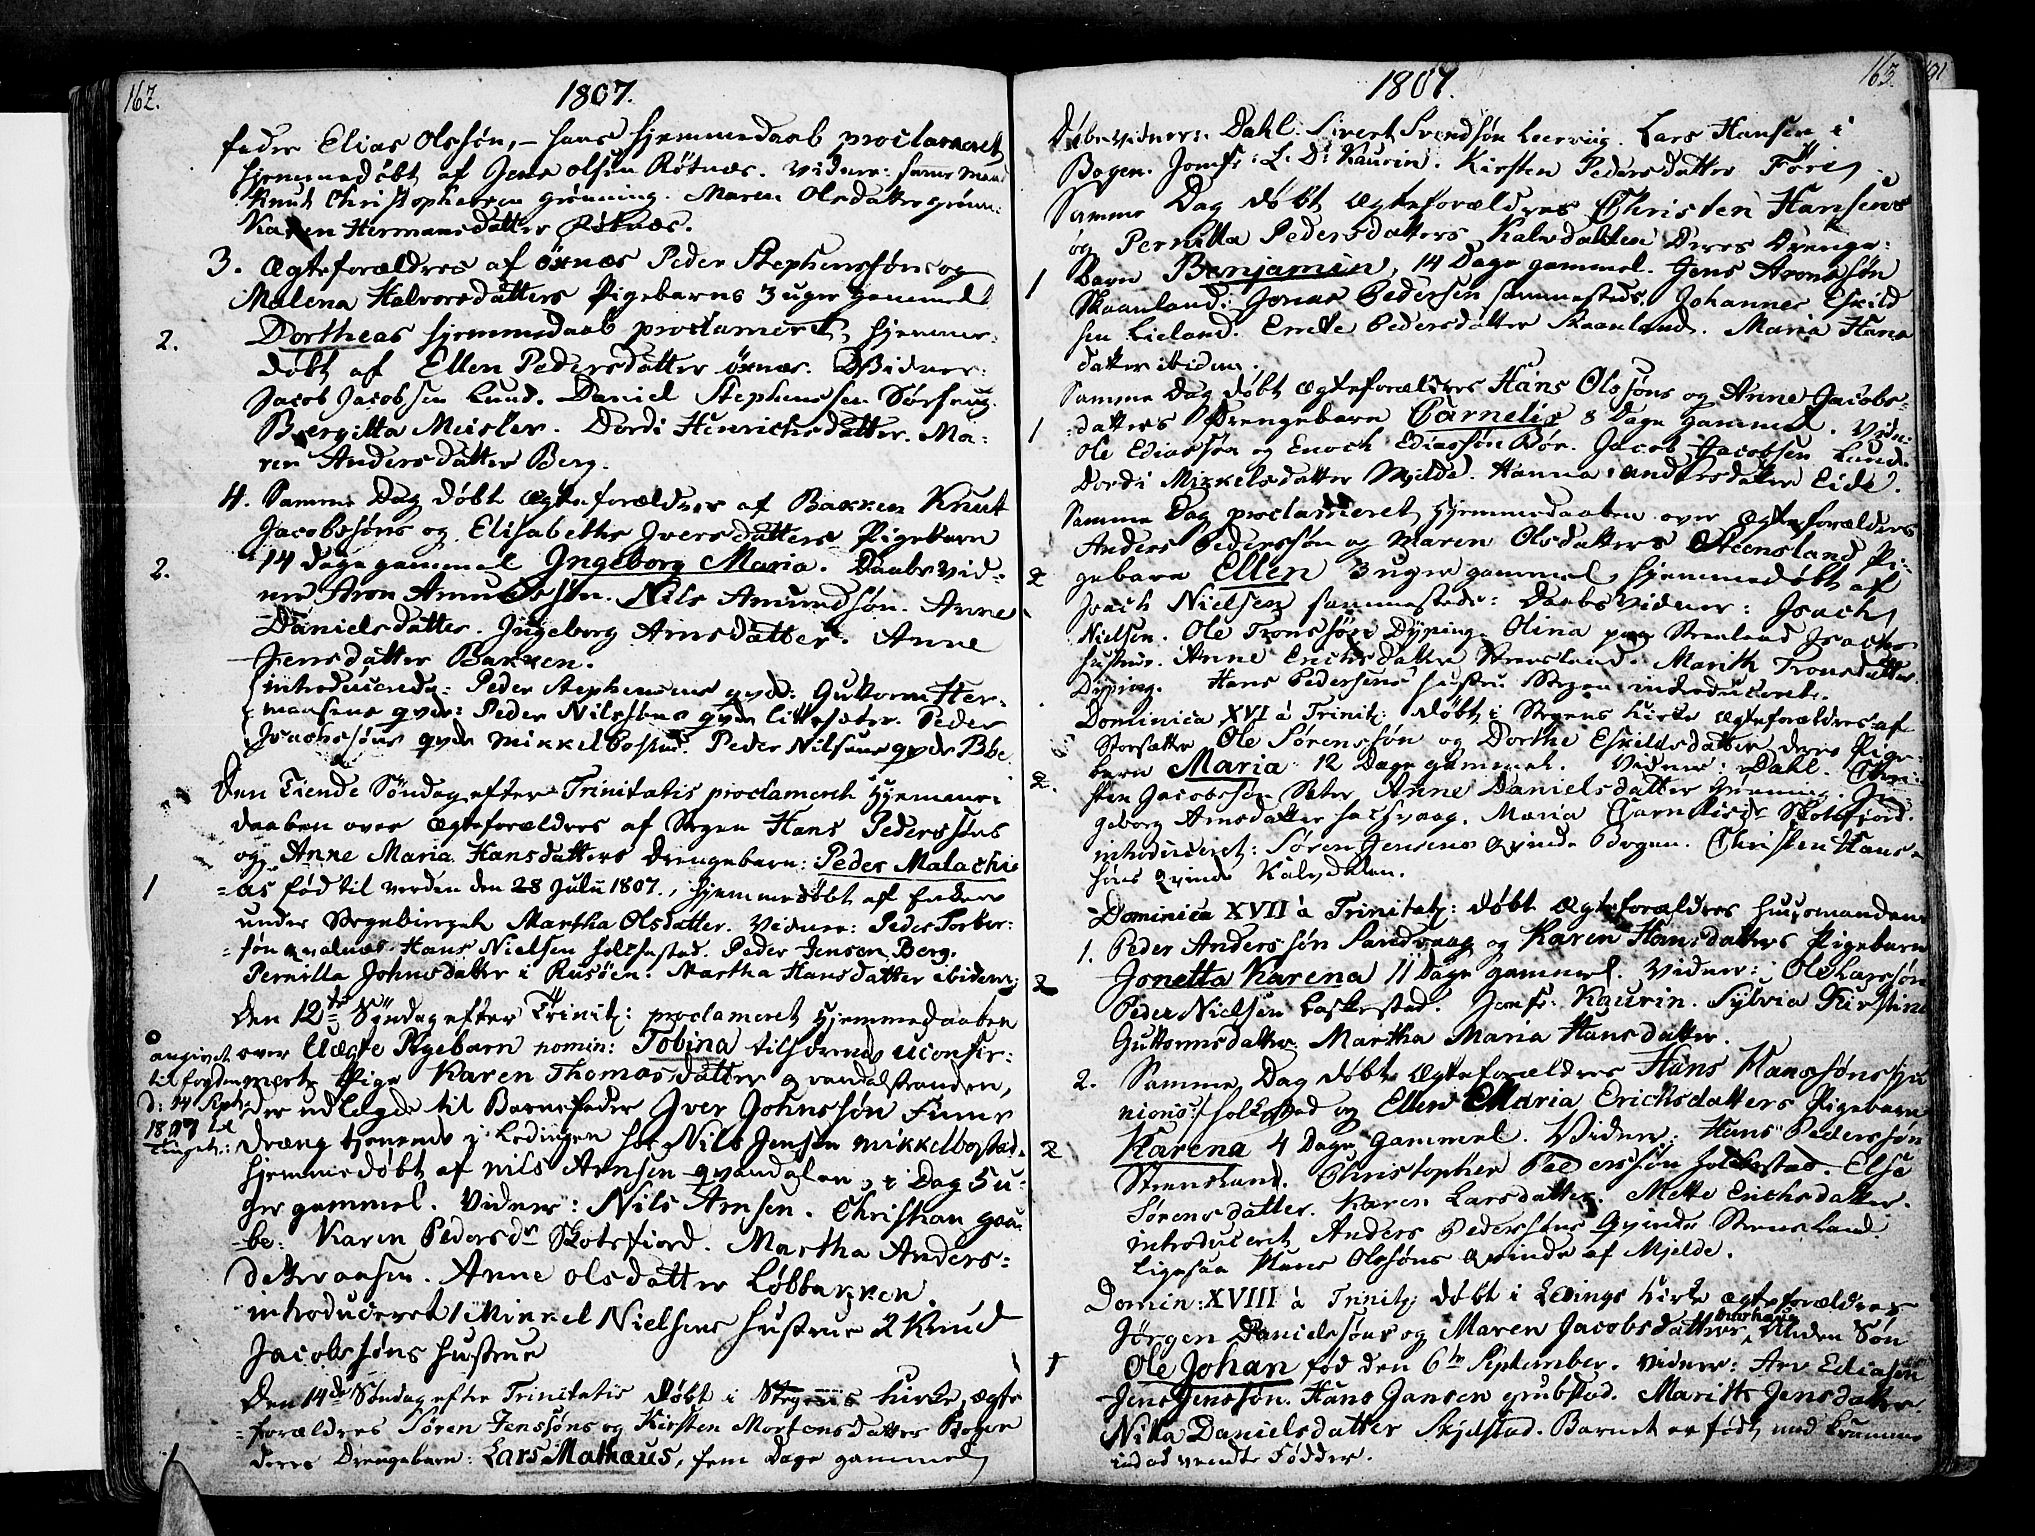 162.
1807.
fader Elias Olssøn, – hans hjemmedaab proclameret
hjemmedøbt af Jens Olsen Røtnæs. Vidner: samme mand
Knud Christophersen Grønning. Maren Olsdatter Grønn:
Karen Hermansdatter Røtnæs.
3. Ægteforældres af Öxnæs Peder Stephenssøns og
Malena Halvorsdatters Pigebarns 3 uger gammel
2. Dortheas hjemmedaab proclameret, hjemme-
døbt af Ellen Pedersdatter Öxnæs. Vidner:
Jacob Jacobsen Lund. Daniel Stephenssen
Bergitta Meisler. Dordi Hinrichsdatter. Ma-
ren Andersdatter Berg.
4. Samme Dag døbt Ægteforældres af Bakken Knut
Jacobssøns og Elisabeths Iversdatters Pigebarn
2. 14 dage gammel Ingeborg Maria. Daabsvid-
ner Aron Amundssøn. Nils Amundsøn. Anne
Danielsdatter. Ingeborg Arnsdatter. Anne
Jensdatter Bakken.
introducerede: Peder Stephensens qvd: Guttorm Her-
mansens qvd: Peder Nilssøns qvde Littesæter. Peder
Isachssøns qvde Mikkelbostad. Peder Nilsens qvde Bøe.
Den Tiende Søndag efter Trinitatis proclameret Hjemme-
daaben over Ægteforældres af Stegen Hans Pederssøns
og Anne Maria Hansdatters Drengebarn: Peder Malachi-
1 as født til verden den 28 Julii 1807., hjemmedøbt af
under Martha Olsdatter. Vidner: Peder Torber-
søn Hans Nielsen Holkestad. Peder Jensen Berg.
Pernilla Johnsdatter i Russøen. Martha Hansdatter ibidem.
Den 12te Søndag efter Trinit: proclameret Hjemmedaaben
angivet over Uægte Pigebarn nomin: Tobina tilhørende uconfir-
til fogden merte Pige Karen Thomasdatter Qvandalstranden,
d: 14 Sept: der udlægde til Barnefader Iver Johnssøn
1807 dræng tjenende i Lødingen hos Nils Jensen Mikkelbostad.
hjemmedøbt af Nils Arnsen Qvandalen, i Dag 5 u-
ger gammel. Vidner: Nils Arnsen. Christian Gaa-
be. Karen Pedersdr Skotsfiord. Martha Anders-
datter Aasen. Anne Olsdatter Løbbakken.
introduceret 1 Mikkel Nielsens Hustrue 2 Knud
Jacobssøns Hustrue
Den 14de Søndag efter Trinitatis døbt i Stegens Kirke, Ægte
forældres Søren Jenssøns og Kirsten Mortensdatters Bogen
1 deres Drengebarn: Lars Mathæus, fem Dage gammel
163
1807.
Døbevidner: Dahl. Sivert Svendsøn Leervig. Lars Hansen i
Bogen. Jomfr: L: D: Kaurin. Kirsten Pedersdatter Före
Samme Dag døbt Ægteforældres Christen Hansens
og Pernilla Pedersdatters Kalvdalen Deres Drenge-
1 Barn Benjamin, 14 Dage gammel. Jens Aronssøn
Skaanland. Jonas Pedersen sammesteds. Johannes Eskild
sen Lieland. Pedersdatter Skaanland. Maria Hans
datter ibidem.
Samme Dag døbt Ægteforældres Hans Olssøns og Anne Jacobs-
1 datters Drengebarn Carnelis 8 Dage gammel. Vidn:
Ole Ediassøn og Enoch Ediassøn Bøe. Jacob Jacobsen Lund.
Dordi Mikkelsdatter Mjelde. Hanna Andersdatter Eide.
Samme Dag proclameret Hjemmedaaben over Ægteforældres
Anders Pederssøn og Maren Olsdatters Steensland Pi-
2 gebarn Ellen 3 uger gammel, hjemmedøbt af
Isach Nielsen sammesteds: Daabsvidner: Isach
Nielsen. Ole Tronssøn Dyping. Olina paa Steensland Isachs
hustrue. Anne Erichsdatter Steensland. Marith Tronsdatter
Dyping. Hans Pedersens hustru Stegen introduceret.
Dominica XVI à Trinit: døbt i Stegens Kirke Ægteforældres af
Storsætter Ole Sørenssøn og Dorthe Eskildsdatter deres Pige-
2. barn Maria 12 Dage gammel. Vidner: Dahl. Chri-
sten Jacobssøn Sæter Anne Danielsdatter Grønning. In-
geborg Arnsdatter Halsvaag. Maria Skotsfjord.
introduceret: Søren Jensens Qvinde Bogen. Christen Hans-
søns Qvinde Kalvdalen.
Dominica XVII à Trinitat: døbt Ægteforældres Huusmandens
1. Peder Anderssøn Sandvaag og Karen Hansdatters Pigebarn
2 Jonetta Karena 11 Dage gammel. Vidner: Ole Larssøn
Peder Nielsen Laskestad. Jomfr: Kaurin. Sylvia Kirstine
Guttormsdatter. Martha Maria Hansdatter.
2. Samme Dag døbt Ægteforældres Hans Hanssøns Ju
nioris Holkestad og Ellen Maria Erichsdatters Pigebarn
2 Karena 4 Dage gammel. Vidner: Hans Pederssøn
Steensland. Christopher Pederssøn Holkestad. Else
Sørensdatter. Karen Larsdatter. Mette Erichsdatter.
introduceret Anders Pederssøns Qvinde Steensland
ligesaa Hans Olssøns Qvinde af Mjelde.
Domin: XVIII à Trinit: døbt i Lødings Kirke Ægteforældres
Jørgen Danielssøns og Maren Jacobsdatters liden Søn
1 Ole Johan fød den 6te September. Vidner: Ediassøn
Jens Jenssøn. Hans Jansen Grubstad. Marith Jensdatter.
Nilla Danielsdatter Skjelstad. Barnet er født med krumme
indad vendte Födder.